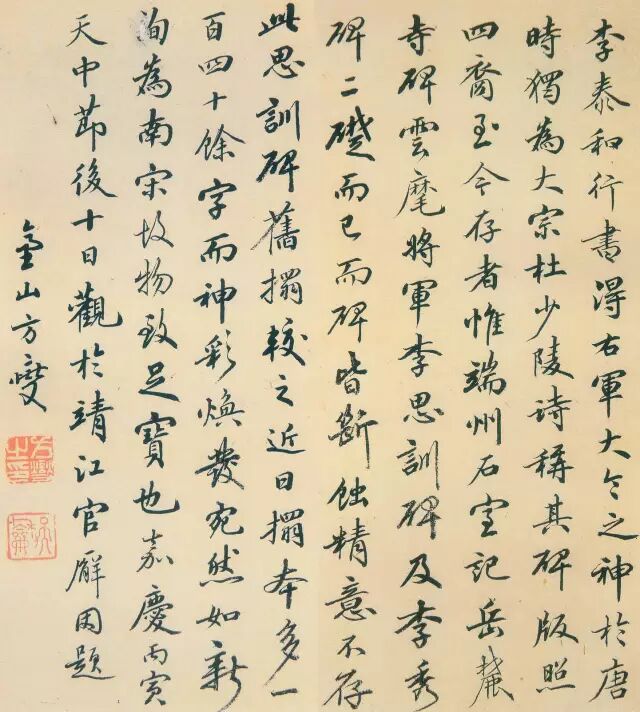 李泰和行書得右軍大令之神於唐
時獨為大宗杜少陵詩稱其碑版照
四裔至今存者惟端州石室記岳麓
寺碑雲麾將軍李思訓碑及李秀
碑二礎而已而碑皆斷蝕精意不存
此思訓碑舊搨較之近日搨本多一
百四十餘字而神彩煥發宛然如新
洵為南宋故物致足寶也嘉慶丙寅
天中節後十日觀於靖江官廨因題
臺山方燮
方燮之印